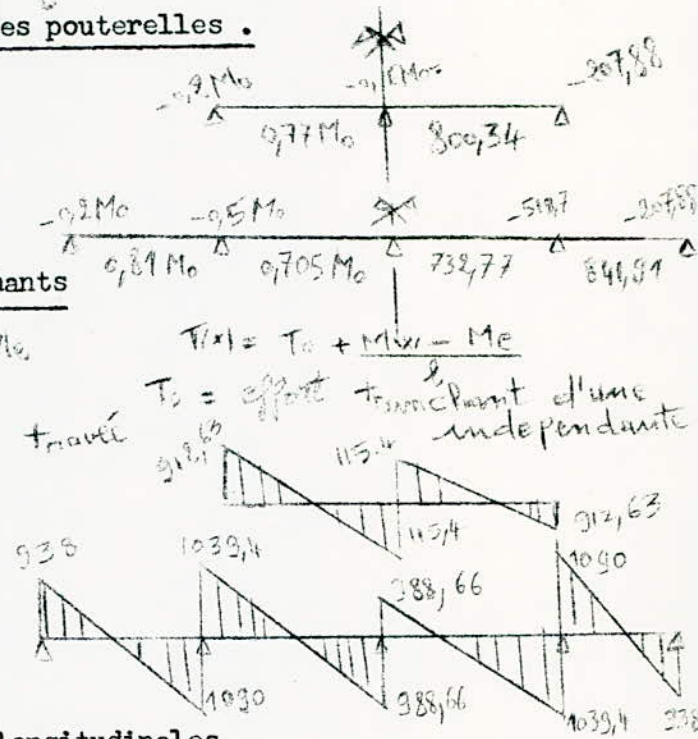 es pouterelles .
-0,2 Mo -207,88
0,77 Mo 800,34
-0,2 Mo -0,5 Mo -518,7 -207,88
0,81 Mo 0,705 Mo 732,77 841,91
nants
T(x) = To + Mw - Me
l
To = effort tranchant d'une
travée independante
912,63 115.4
115,4 912,63
938 1039,4 988,66 1090
1090 988,66 1039,4 938
longitudinales